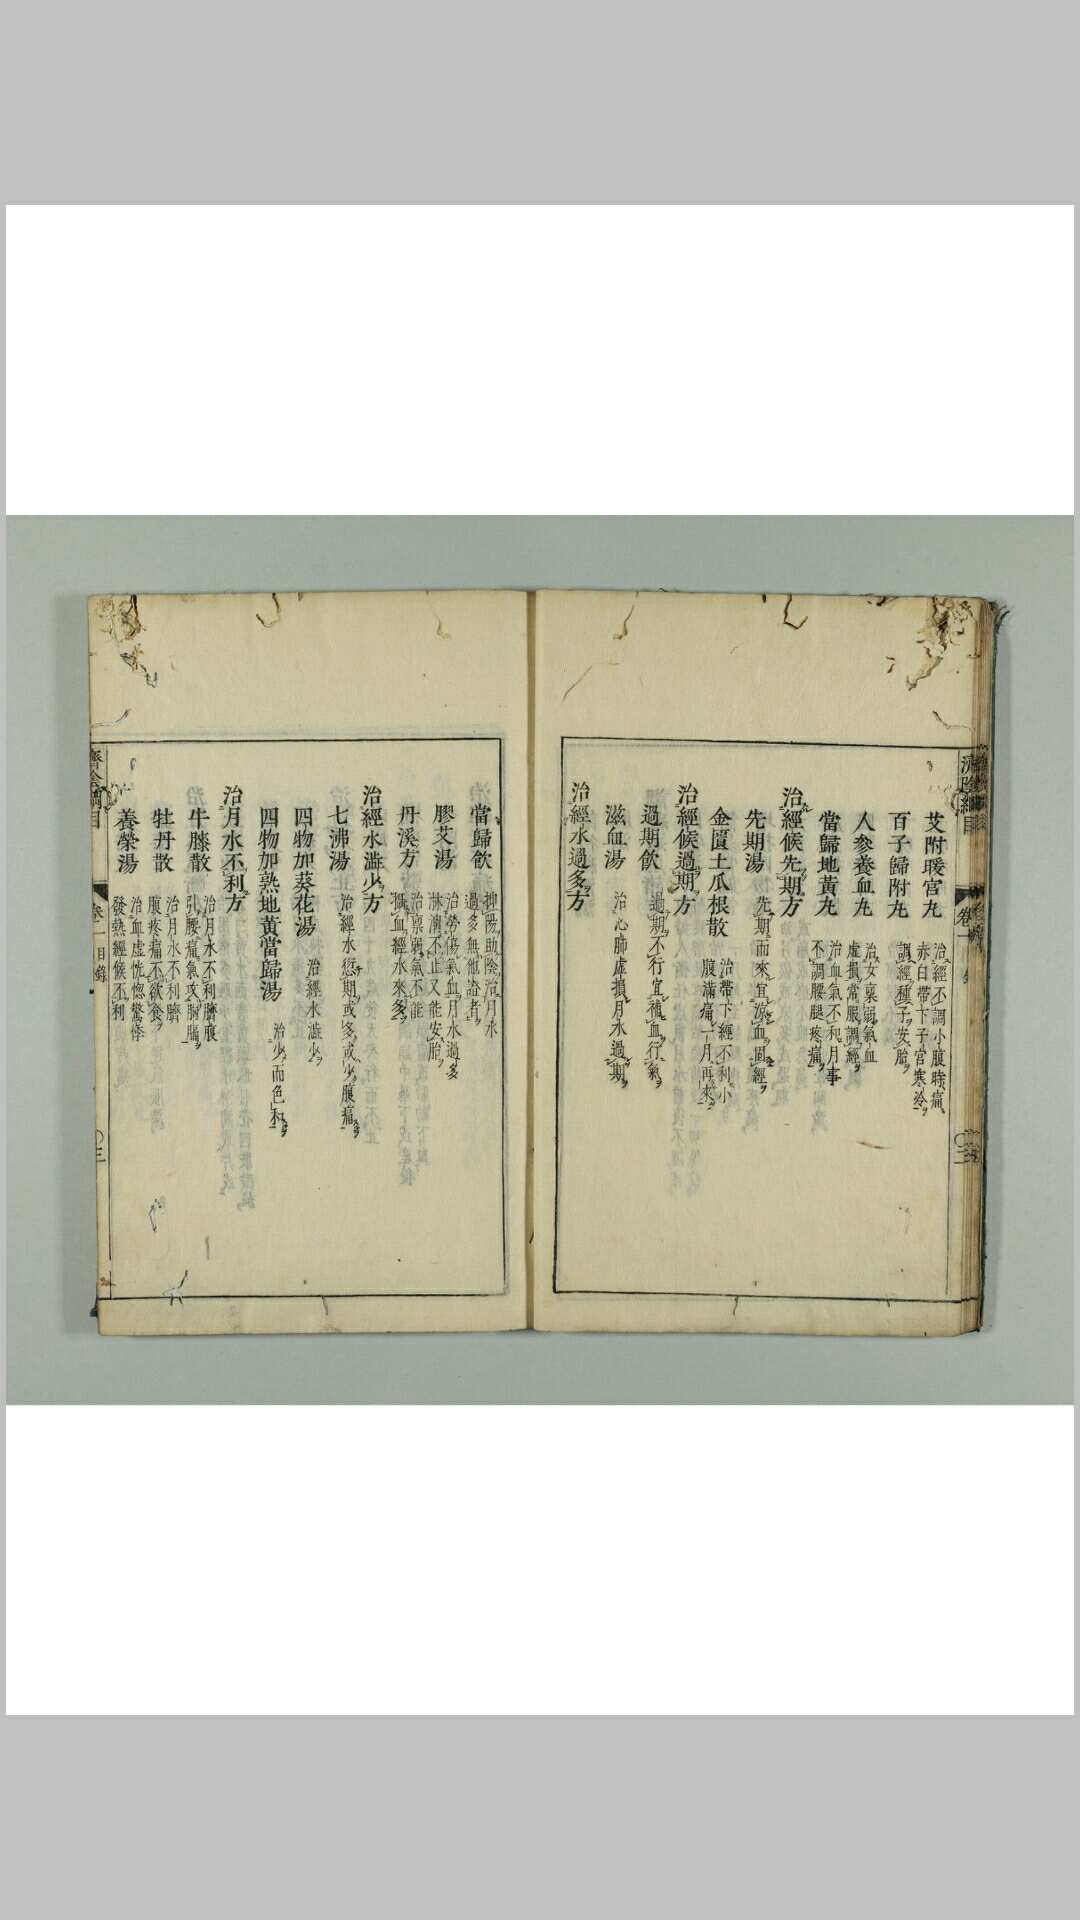 艾附暖宮丸 治經不調小腹時痛
赤白帶下子宮寒冷
百子歸附丸 調經種子安胎
人參養血丸 治女稟弱氣血
虛損常服調經
當歸地黃丸 治血氣不和月事
不調腰腿疼痛
治經候先期方
先期湯 先期而來宜涼血固經
金匱土瓜根散 治帶下經不利小
腹滿痛一月再來
治經候過期方
過期飲 過期不行宜補血行氣
滋血湯 治心肺虛損月水過期
治經水過多方
當歸飲 抑陽助陰治月水
過多無他證者
膠艾湯 治勞傷氣血月水過多
淋瀝不止又能安胎
丹溪方 治稟弱氣不能
攝血經水來多
治經水澁少方
七沸湯 治經水愆期或多或少腹痛
四物加葵花湯 治經水澁少
四物加熟地黃當歸湯 治少而色和
治月水不利方
牛膝散 治月水不利臍腹
引腰痛氣攻胸膈
牡丹散 治月水不利臍
腹疼痛不欲食
養榮湯 治血虛恍惚驚悸
發熱經候不利
濟陰綱目 卷一 目錄 〇三